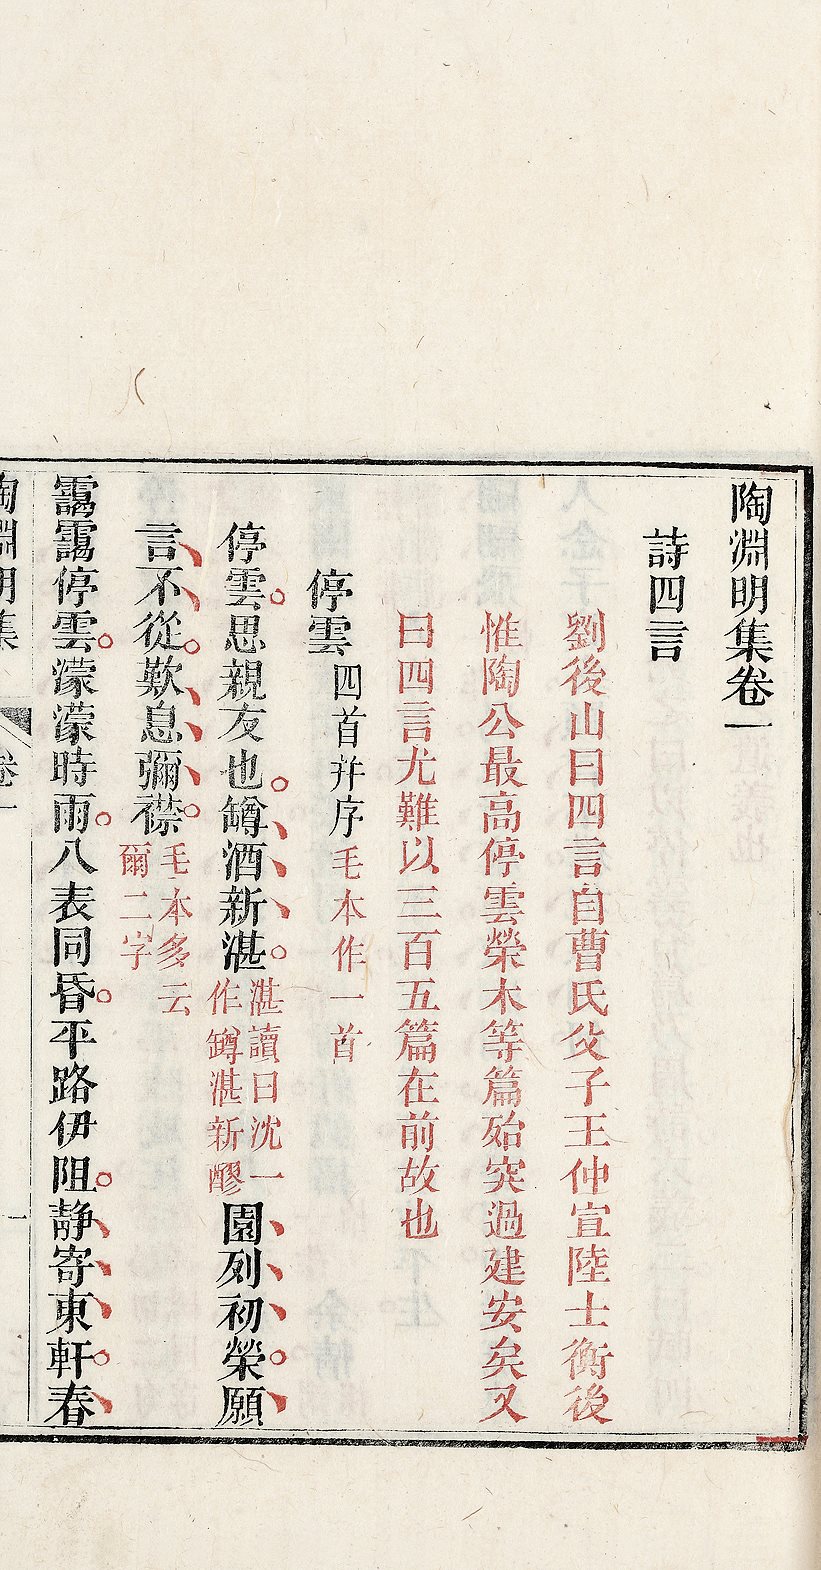 陶淵明集卷一
詩四言
劉後山曰四言自曹氏父子王仲宣陸士衡後
惟陶公最高停雲榮木等篇殆突過建安矣又
曰四言尤難以三百五篇在前故也
停雲四首并序毛本作一首
停雲思親友也罇酒新湛湛讀曰沈一作罇湛新醪園列初榮願
言不從歎息彌襟毛本多云爾二字
靄靄停雲濛濛時雨八表同昏平路伊阻靜寄東軒春
陶淵明集 卷一 一